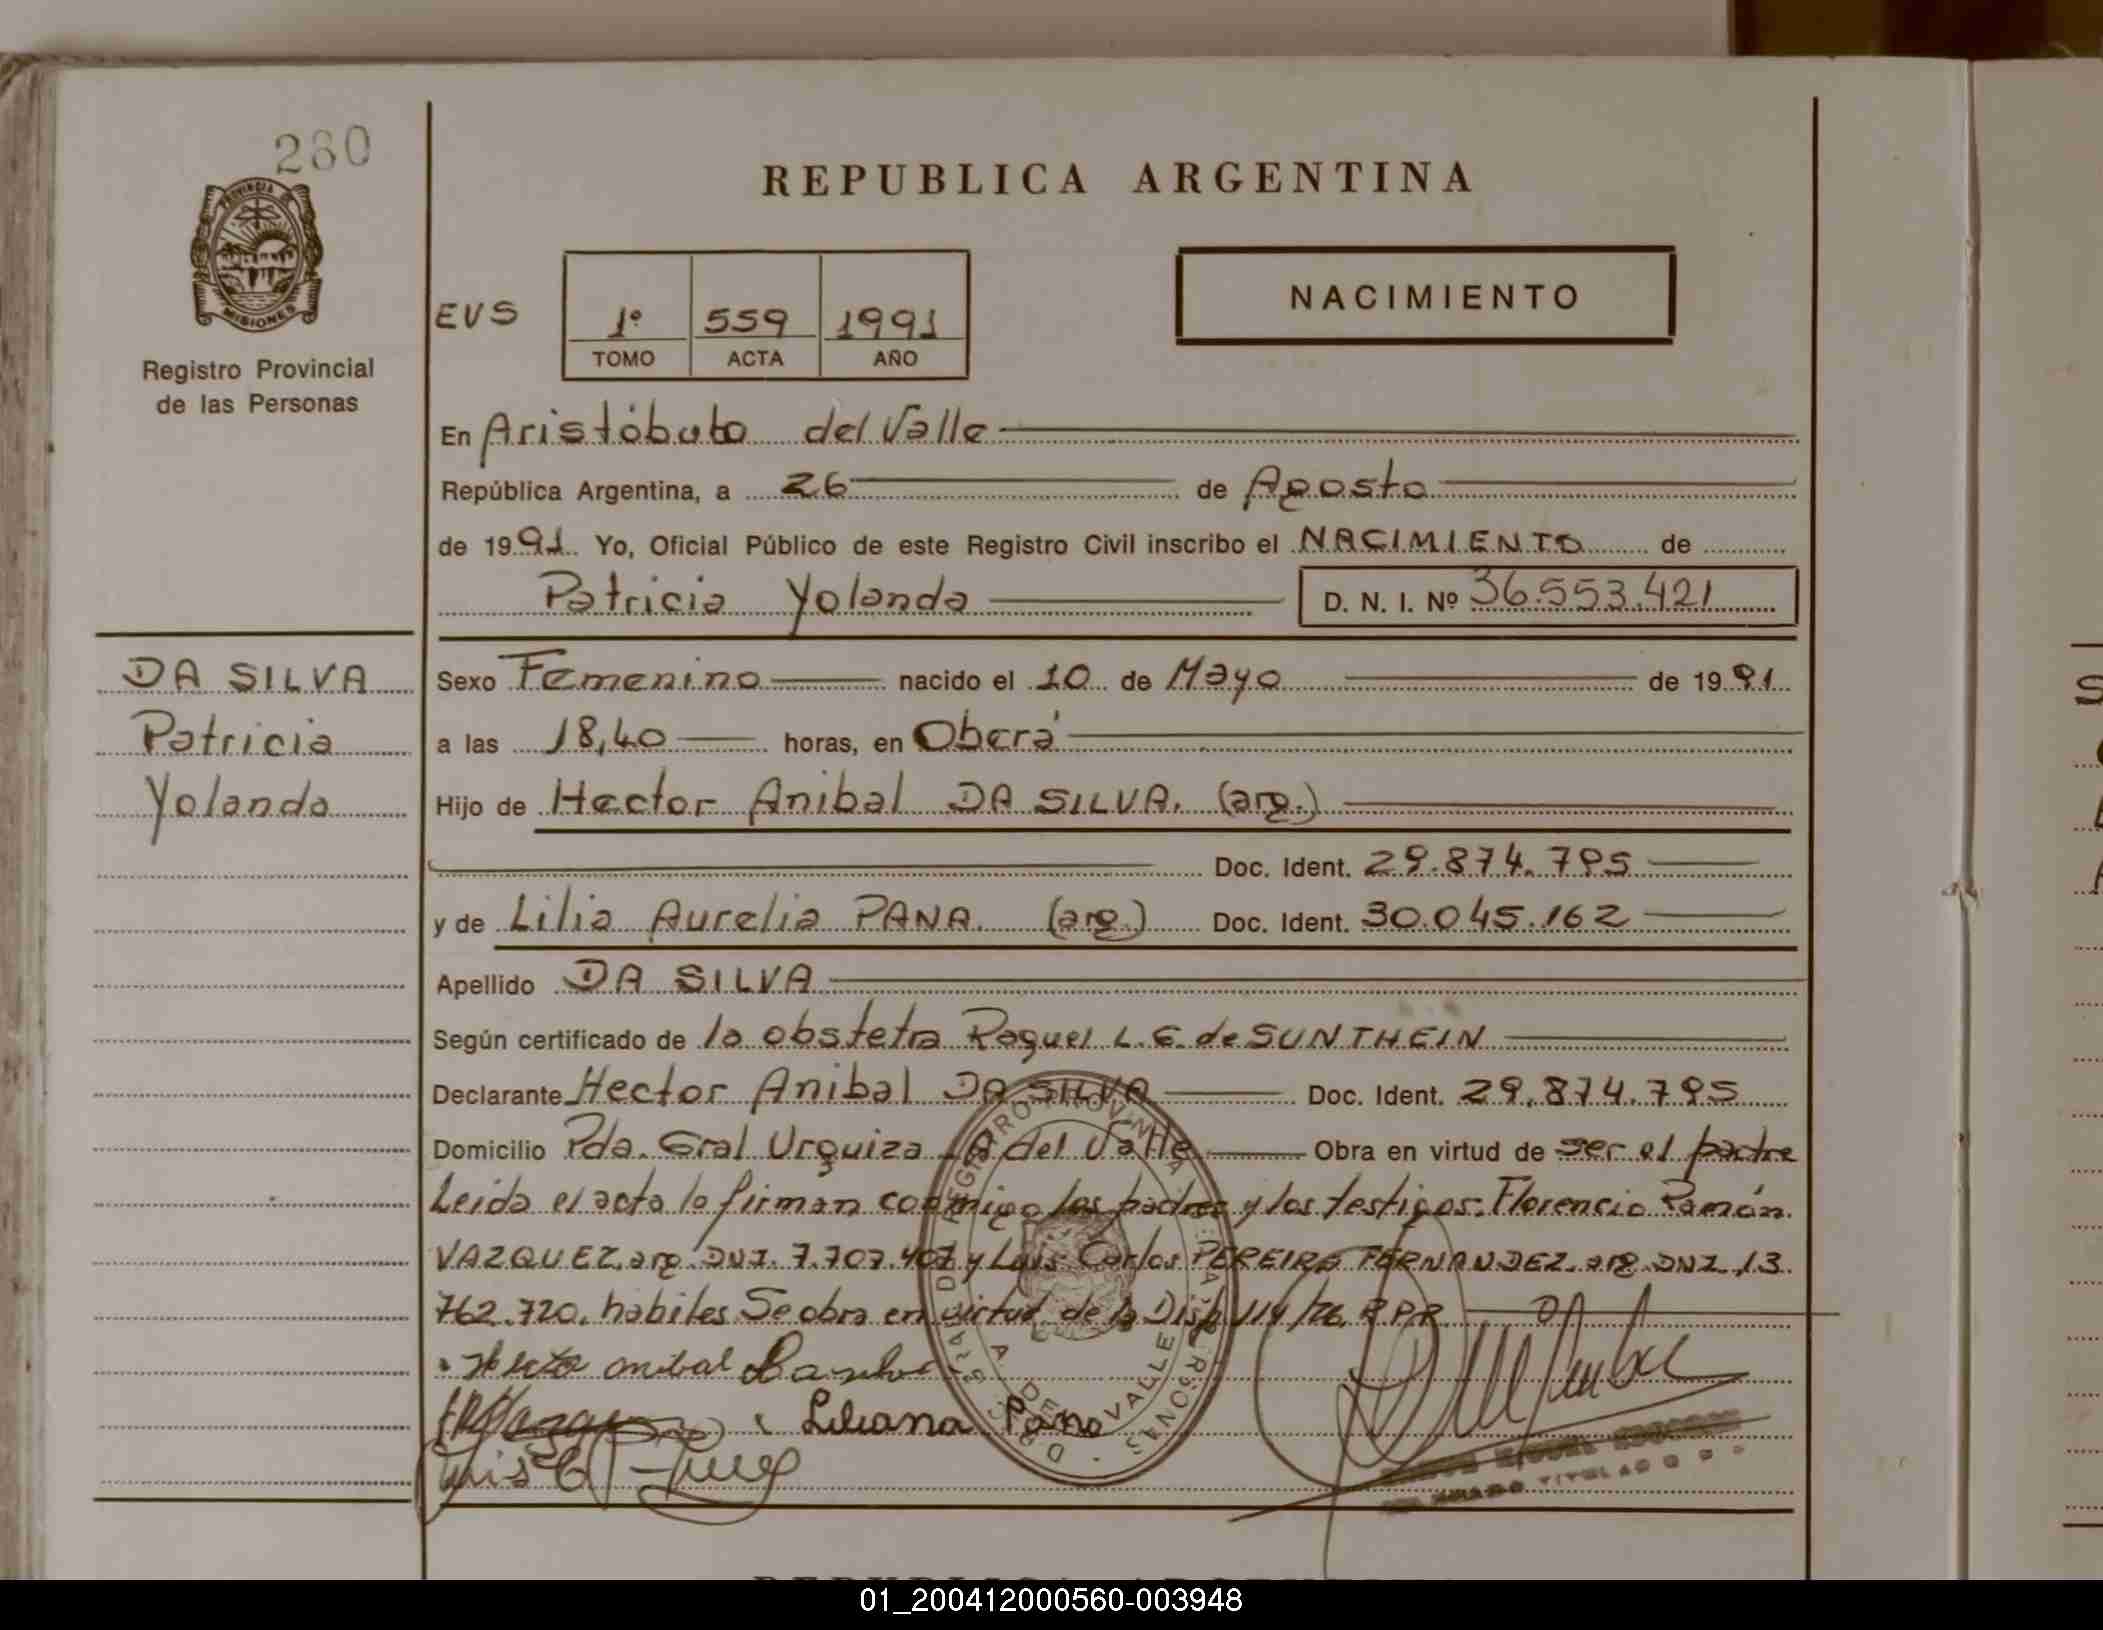 280
PROVINCIA DE
MISIONES
Registro Provincial
de las Personas
REPUBLICA ARGENTINA
EVS
1º 559 1991
TOMO ACTA AÑO
NACIMIENTO
En Aristóbulo del Valle
República Argentina, a 26 de Agosto
de 1991. Yo, Oficial Público de este Registro Civil inscribo el NACIMIENTO de
Patricia Yolanda D. N. I. Nº 36.553.421
DA SILVA
Patricia
Yolanda
Sexo Femenino nacido el 10 de Mayo de 1991
a las 18,40 horas, en Oberá
Hijo de Hector Anibal DA SILVA. (arg.)
Doc. Ident. 29.874.795
y de Lilia Aurelia PANA. (arg.) Doc. Ident. 30.045.162
Apellido DA SILVA
Según certificado de la obstetra Raquel L. G. de SUNTHEIN
Declarante Hector Anibal DA SILVA Doc. Ident. 29.874.795
Domicilio Pda. Gral Urquiza A del Valle Obra en virtud de ser el padre
Leida el acta la firman conmigo los padres y los testigos: Florencio Ramón
VAZQUEZ, arg. DNI. 7.707.407 y Luis Carlos PEREIRA FERNANDEZ. arg. DNI. 13.
762.720. habiles Se obra en virtud de la Disp 114/76. R.P.P.
anibal
Liliana Pana
Luis C
A. DEL VALLE
01_200412000560-003948